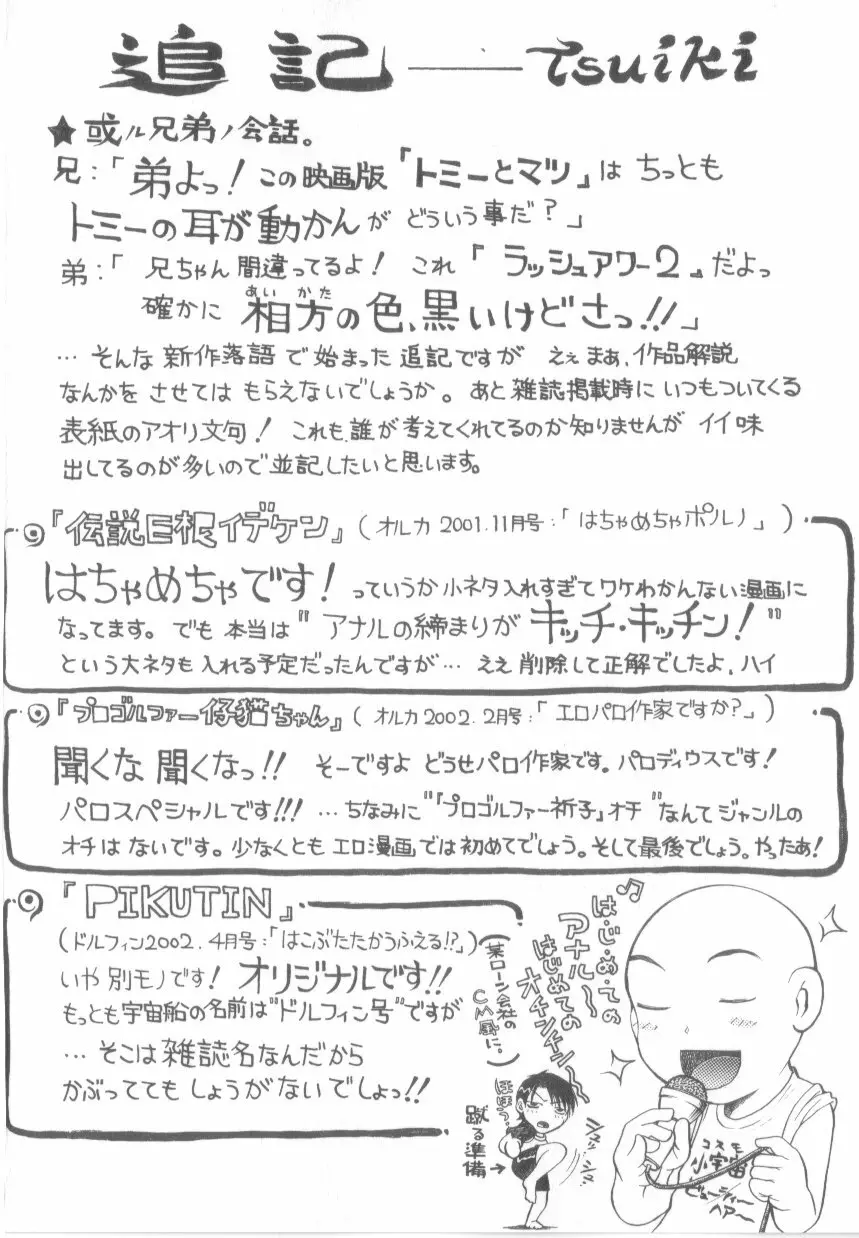 追記 ── tsuiki
★或ル兄弟ノ会話。
兄:「弟よっ! この映画版『トミーとマツ』は ちっとも
トミーの耳が動かんが どういう事だ?」
弟:「 兄ちゃん間違ってるよ! これ『ラッシュアワー2』だよっ
あい かた
確かに 相方の色、黒いけどさっ!!」
… そんな 新作落語 で始まった 追記ですが ええ まぁ、作品解説
なんかを させては もらえないでしょうか。あと 雑誌掲載時に いつもついてくる
表紙のアオリ文句! これも、誰が考えてくれてるのか知りませんが イイ味
出してるのが多いので並記したいと思います。
『伝説巨根イデケン』(オルカ 2001.11月号:「はちゃめちゃポルノ」)
はちゃめちゃです! っていうか小ネタ入れすぎてワケわかんない漫画に
なってます。でも 本当は "アナルの締まりが キッチ・キッチン!"
という大ネタも入れる予定だったんですが… ええ 削除して正解でしたよ、ハイ
『プロゴルファー仔猫ちゃん』(オルカ2002.2月号:「エロパロ作家ですか?」)
聞くな 聞くなっ!! そーですよ どうせパロ作家です。パロディウスです!
パロスペシャルです!!! …ちなみに"『プロゴルファー祈子』オチ"なんてジャンルの
オチは ないです。少なくとも エロ漫画では初めてでしょう。そして最後でしょう。やったあ!
『PIKUTIN』
(ドルフィン2002.4月号:「はこぶたたかうふえる!?」)
いや 別モノです! オリジナルです!!
もっとも宇宙船の名前は"ドルフィン号"ですが
… そこは 雑誌名なんだから
かぶってても しょうがないでしょっ!!
♪は・じ・め・ての
アナル〜
はじめての
オチンチン〜
(某ローン会社の
CM風に。)
蹴る準備→
コスモ
小宇宙
ビューティー
ヘアー